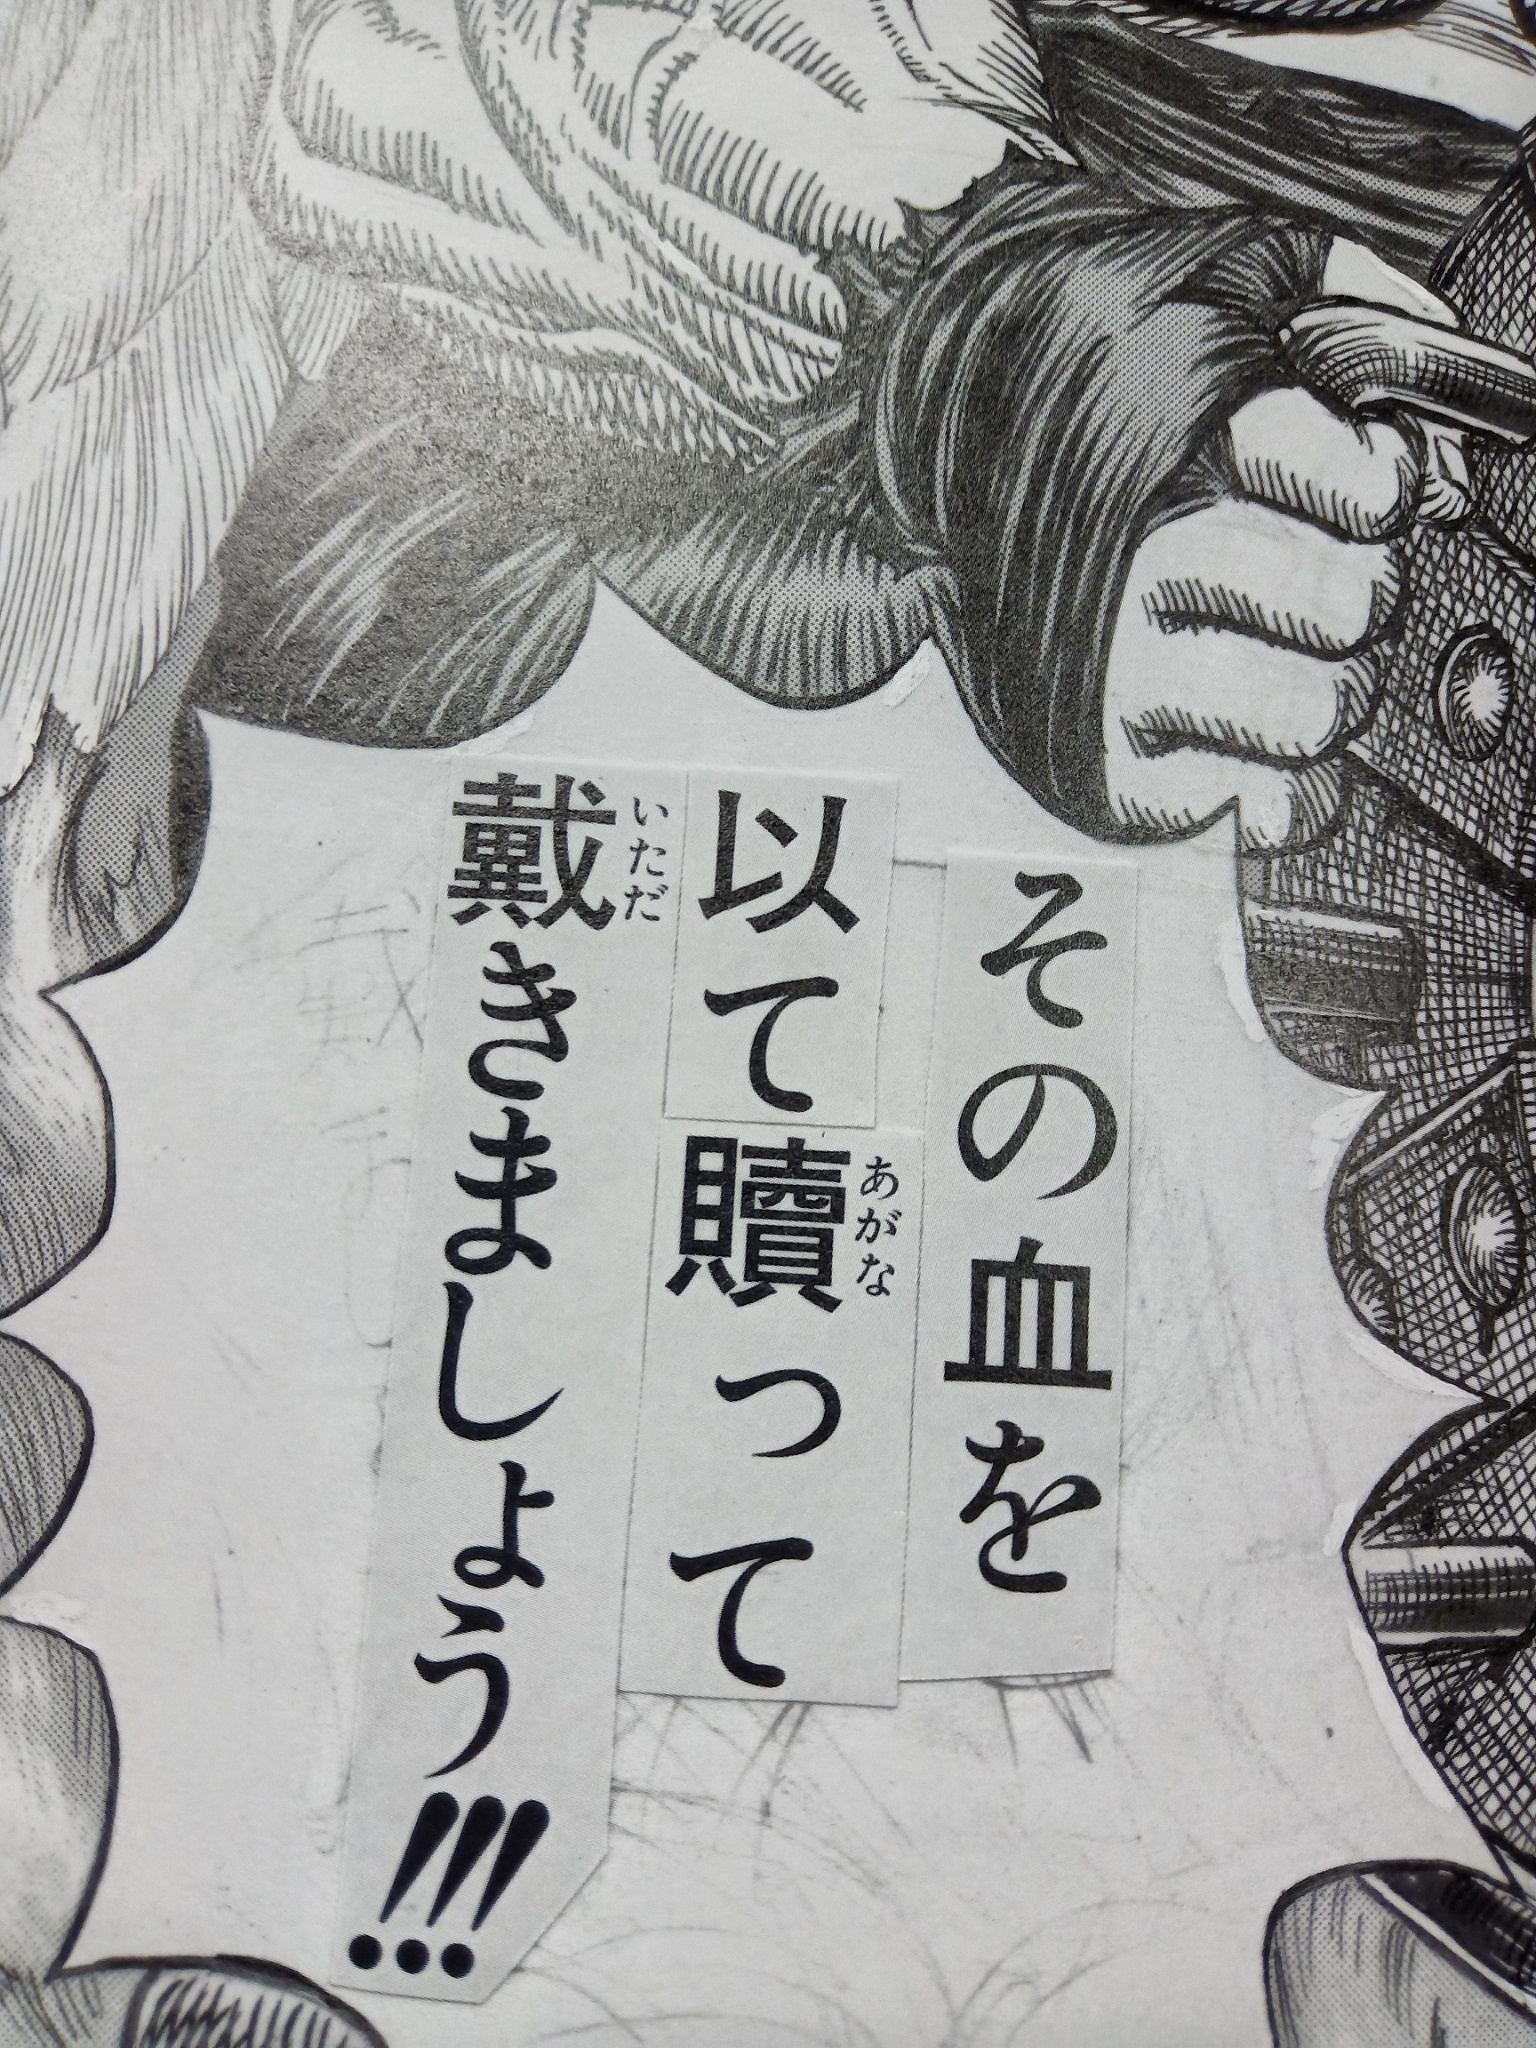 その血を
以て贖って
戴きましょう!!!
あがな
いただ